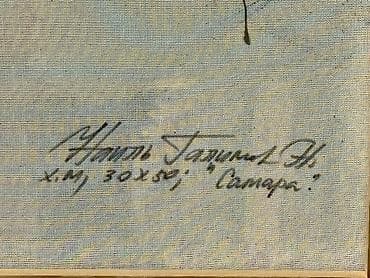 Наиль Галимов Н.
х.м, 30х50; "Самара".